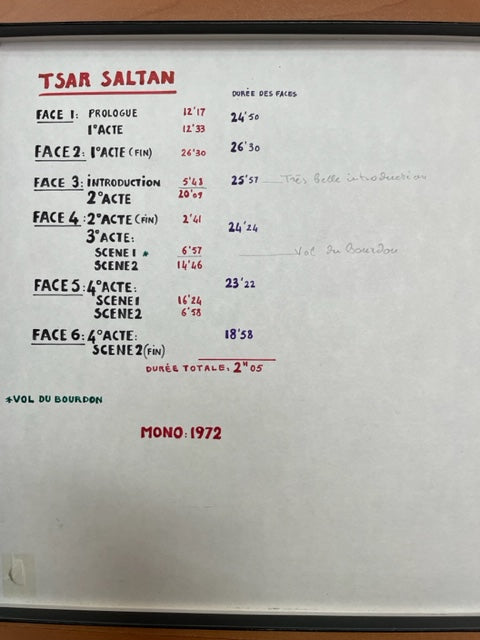 TSAR SALTAN
DURÉE DES FACES
FACE 1: PROLOGUE 12'17 24'50
1°ACTE 12'33
FACE 2: 1°ACTE (FIN) 26'30 26'30
FACE 3: INTRODUCTION 5'48 25'57 Très belle introduction
2°ACTE 20'09
FACE 4: 2°ACTE (FIN) 2'41 24'24
3°ACTE:
SCENE 1 * 6'57 Vol du Bourdon
SCENE 2 14'46
FACE 5: 4°ACTE: 23'22
SCENE 1 16'24
SCENE 2 6'58
FACE 6: 4°ACTE: 18'58
SCENE 2 (FIN)
DURÉE TOTALE: 2H 05
*VOL DU BOURDON
MONO: 1972